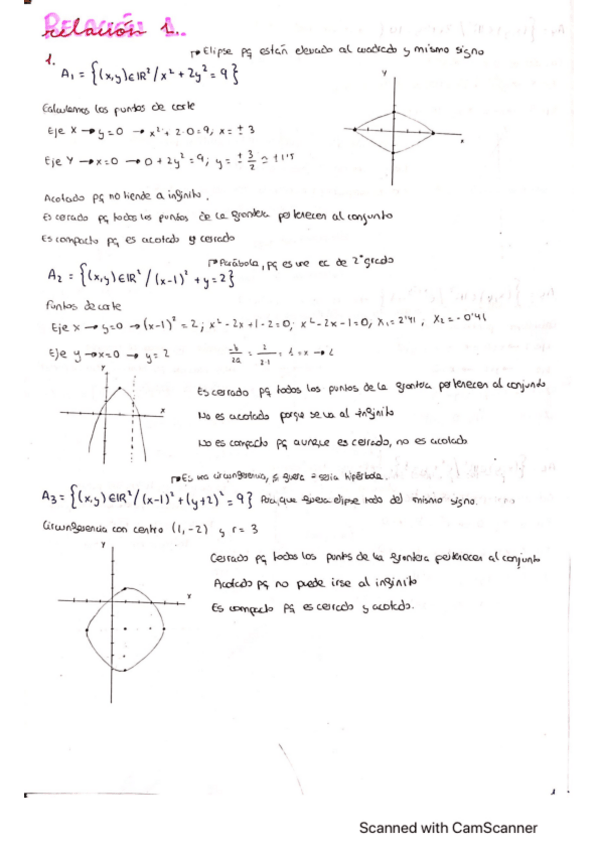 RELACIÓN 1.
relación 1..
1.
→ Elipse pq están elevado al cuadrado y mismo signo
A₁ = {(x,y)∈IR²/x² + 2y² = 9}
Calculamos los puntos de corte
Eje X → y=0 → x² + 2·0 = 9, x = ± 3
Eje Y → x=0 → 0 + 2y² = 9; y = ± 3/2 ≈
Acotado pq no tiende a infinito.
Es cerrado pq todos los puntos de la frontera pertenecen al conjunto
Es compacto pq es acotado y cerrado
→ Parábola, pq es una ec de 2º grado
A₂ = {(x,y)∈IR²/(x-1)² + y = 2}
Puntos de corte
Eje X → y=0 → (x-1)² = 2; x² - 2x + 1 - 2 = 0; x² - 2x - 1 = 0, X₁ = 2'41, X₂ = - 0'41
Eje y → x=0 → y = 2
-b/2a = 2/2·1 = 1 = x → 1
Es cerrado pq todos los puntos de la frontera pertenecen al conjunto
No es acotado porque se va al +infinito
No es compacto pq aunque es cerrado, no es acotado
→ Es una circunferencia, si fuera = seria hipérbola.
A₃ = {(x,y)∈IR²/(x-1)² + (y+2)² = 9} Para que fuera elipse todo del mismo signo.
Circunferencia con centro (1,-2) y r = 3
Cerrado pq todos los puntos de la frontera pertenecen al conjunto
Acotado pq no puede irse al infinito
Es compacto pq es cerrado y acotado.
Scanned with CamScanner